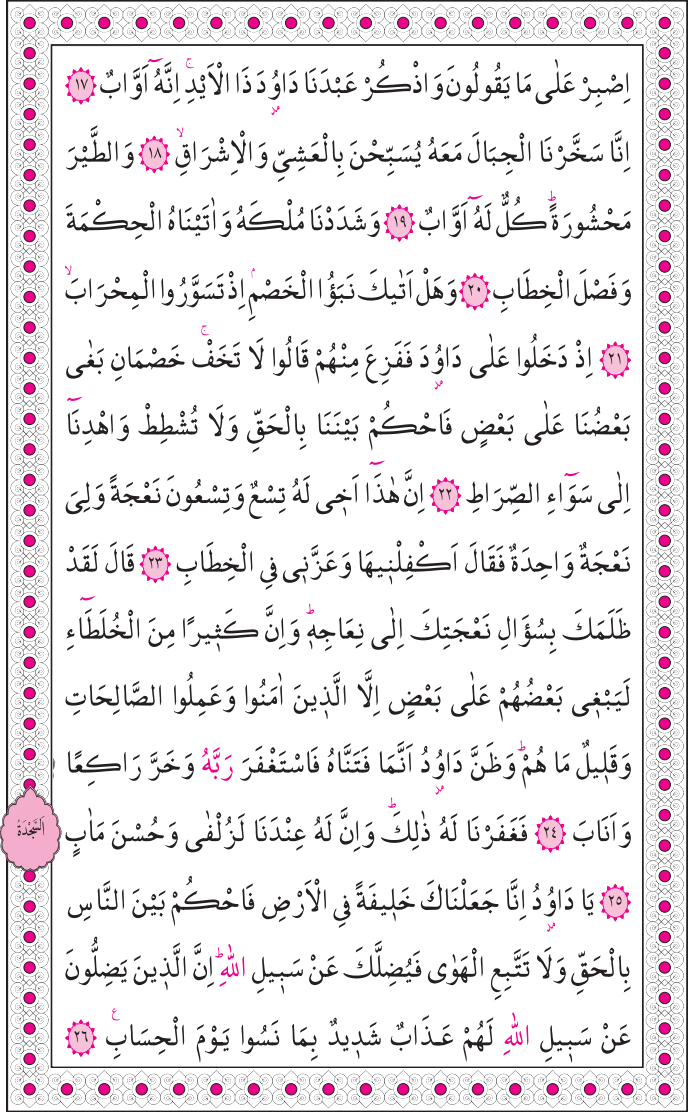 اِصْبِرْ عَلٰى مَا يَقُولُونَ وَاذْكُرْ عَبْدَنَا دَاوُ۫دَ ذَا الْاَيْدِۚ اِنَّهُٓ اَوَّابٌ ﴿١٧﴾
اِنَّا سَخَّرْنَا الْجِبَالَ مَعَهُ يُسَبِّحْنَ بِالْعَشِيِّ وَالْاِشْرَاقِۙ ﴿١٨﴾ وَالطَّيْرَ
مَحْشُورَةًۜ كُلٌّ لَهُٓ اَوَّابٌ ﴿١٩﴾ وَشَدَدْنَا مُلْكَهُ وَاٰتَيْنَاهُ الْحِكْمَةَ
وَفَصْلَ الْخِطَابِ ﴿٢٠﴾ وَهَلْ اَتٰيكَ نَبَؤُا الْخَصْمِۢ اِذْ تَسَوَّرُوا الْمِحْرَابَۙ
﴿٢١﴾ اِذْ دَخَلُوا عَلٰى دَاوُ۫دَ فَفَزِعَ مِنْهُمْ قَالُوا لَا تَخَفْۚ خَصْمَانِ بَغٰى
بَعْضُنَا عَلٰى بَعْضٍ فَاحْكُمْ بَيْنَنَا بِالْحَقِّ وَلَا تُشْطِطْ وَاهْدِنَٓا
اِلٰى سَوَٓاءِ الصِّرَاطِ ﴿٢٢﴾ اِنَّ هٰذَٓا اَخ۪ي لَهُ تِسْعٌ وَتِسْعُونَ نَعْجَةً وَلِيَ
نَعْجَةٌ وَاحِدَةٌ فَقَالَ اَكْفِلْن۪يهَا وَعَزَّن۪ي فِي الْخِطَابِ ﴿٢٣﴾ قَالَ لَقَدْ
ظَلَمَكَ بِسُؤَالِ نَعْجَتِكَ اِلٰى نِعَاجِه۪ۜ وَاِنَّ كَث۪يرًا مِنَ الْخُلَطَٓاءِ
لَيَبْغ۪ي بَعْضُهُمْ عَلٰى بَعْضٍ اِلَّا الَّذ۪ينَ اٰمَنُوا وَعَمِلُوا الصَّالِحَاتِ
وَقَل۪يلٌ مَا هُمْۜ وَظَنَّ دَاوُ۫دُ اَنَّمَا فَتَنَّاهُ فَاسْتَغْفَرَ رَبَّهُ وَخَرَّ رَاكِعًا
وَاَنَابَ ﴿٢٤﴾ فَغَفَرْنَا لَهُ ذٰلِكَۜ وَاِنَّ لَهُ عِنْدَنَا لَزُلْفٰى وَحُسْنَ مَاٰبٍ
اَلسَّجْدَةُ
﴿٢٥﴾ يَا دَاوُ۫دُ اِنَّا جَعَلْنَاكَ خَل۪يفَةً فِي الْاَرْضِ فَاحْكُمْ بَيْنَ النَّاسِ
بِالْحَقِّ وَلَا تَتَّبِعِ الْهَوٰى فَيُضِلَّكَ عَنْ سَب۪يلِ اللّٰهِۜ اِنَّ الَّذ۪ينَ يَضِلُّونَ
عَنْ سَب۪يلِ اللّٰهِ لَهُمْ عَذَابٌ شَد۪يدٌ بِمَا نَسُوا يَوْمَ الْحِسَابِ۟ ﴿٢٦﴾